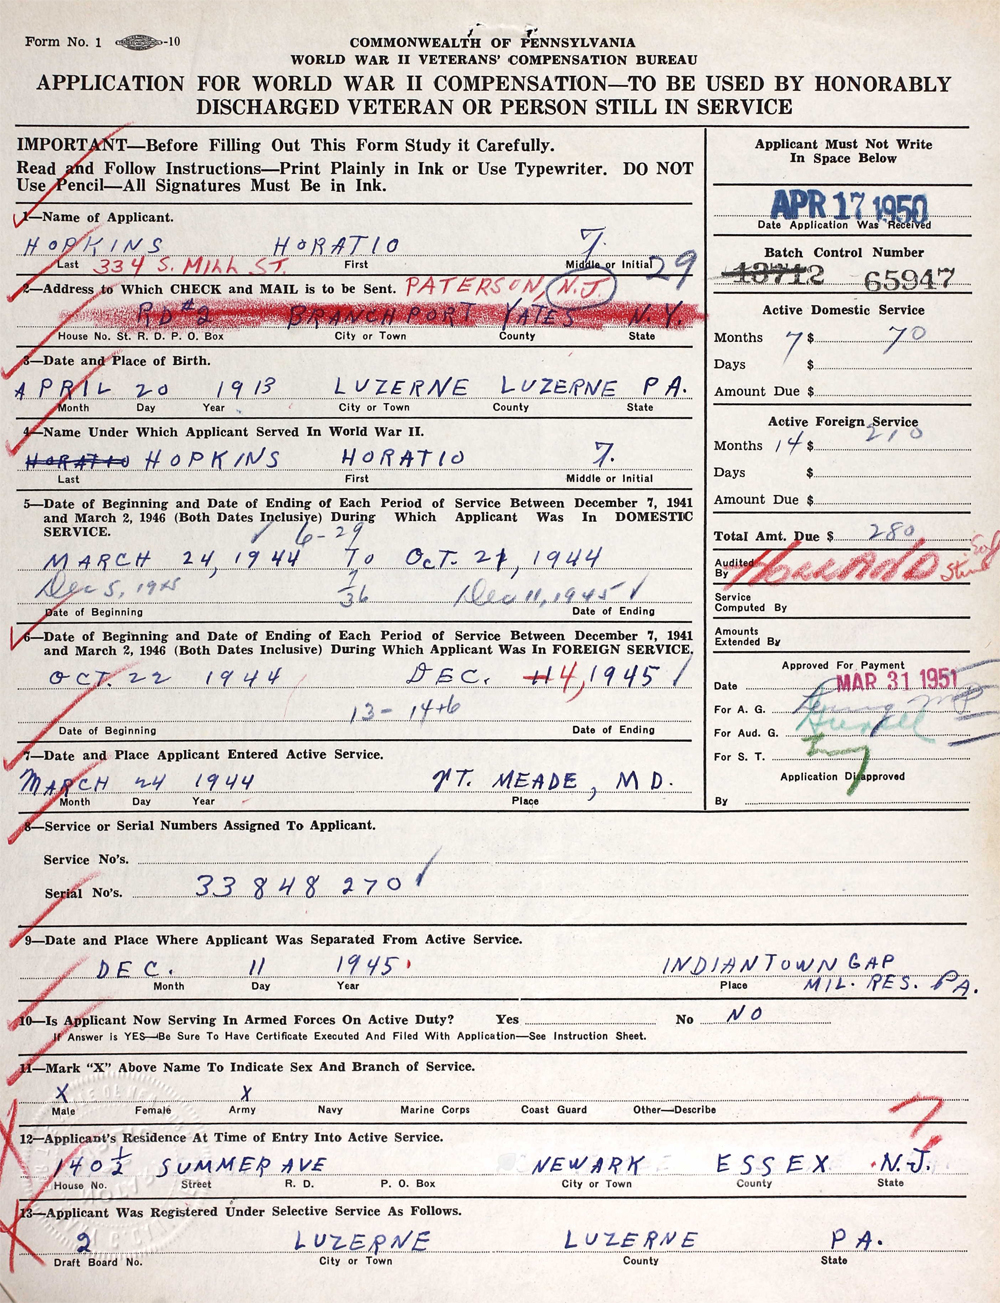 Form No. 1 -10
COMMONWEALTH OF PENNSYLVANIA
WORLD WAR II VETERANS' COMPENSATION BUREAU
APPLICATION FOR WORLD WAR II COMPENSATION—TO BE USED BY HONORABLY
DISCHARGED VETERAN OR PERSON STILL IN SERVICE
IMPORTANT—Before Filling Out This Form Study it Carefully.
Read and Follow Instructions—Print Plainly in Ink or Use Typewriter. DO NOT
Use Pencil—All Signatures Must Be in Ink.
1—Name of Applicant.
HOPKINS HORATIO 7.
Last First Middle or Initial
334 S. MILL ST. 29
2—Address to Which CHECK and MAIL is to be Sent. PATERSON, N.J
RD #2 BRANCHPORT YATES N.Y.
House No. St. R. D. P. O. Box City or Town County State
3—Date and Place of Birth.
APRIL 20 1913 LUZERNE LUZERNE PA.
Month Day Year City or Town County State
4—Name Under Which Applicant Served In World War II.
HORATIO HOPKINS HORATIO 7.
Last First Middle or Initial
5—Date of Beginning and Date of Ending of Each Period of Service Between December 7, 1941
and March 2, 1946 (Both Dates Inclusive) During Which Applicant Was In DOMESTIC
SERVICE.
6-29
MARCH 24, 1944 TO OCT. 21, 1944
Dec 5, 1945 7/36 Dec 11, 1945
Date of Beginning Date of Ending
6—Date of Beginning and Date of Ending of Each Period of Service Between December 7, 1941
and March 2, 1946 (Both Dates Inclusive) During Which Applicant Was In FOREIGN SERVICE.
OCT. 22 1944 DEC. 4, 1945
13-14+6
Date of Beginning Date of Ending
7—Date and Place Applicant Entered Active Service.
MARCH 24 1944 FT. MEADE, MD.
Month Day Year Place
Applicant Must Not Write
In Space Below
APR 17 1950
Date Application Was Received
Batch Control Number
13712 65947
Active Domestic Service
Months 7 $ 70
Days $
Amount Due $
Active Foreign Service
Months 14 $ 210
Days $
Amount Due $
Total Amt. Due $ 280
Audited
By
Service
Computed By
Amounts
Extended By
Approved For Payment
Date MAR 31 1951
For A. G.
For Aud. G.
For S. T.
Application Disapproved
By
8—Service or Serial Numbers Assigned To Applicant.
Service No's.
Serial No's. 33 848 270
9—Date and Place Where Applicant Was Separated From Active Service.
DEC. 11 1945 INDIANTOWN GAP
Month Day Year Place MIL. RES. PA.
10—Is Applicant Now Serving In Armed Forces On Active Duty? Yes No NO
If Answer is YES—Be Sure To Have Certificate Executed And Filed With Application—See Instruction Sheet.
11—Mark "X" Above Name To Indicate Sex And Branch of Service.
X X
Male Female Army Navy Marine Corps Coast Guard Other—Describe
12—Applicant's Residence At Time of Entry Into Active Service.
140½ SUMMER AVE NEWARK ESSEX N.J.
House No. Street R. D. P. O. Box City or Town County State
13—Applicant Was Registered Under Selective Service As Follows.
2 LUZERNE LUZERNE PA.
Draft Board No. City or Town County State